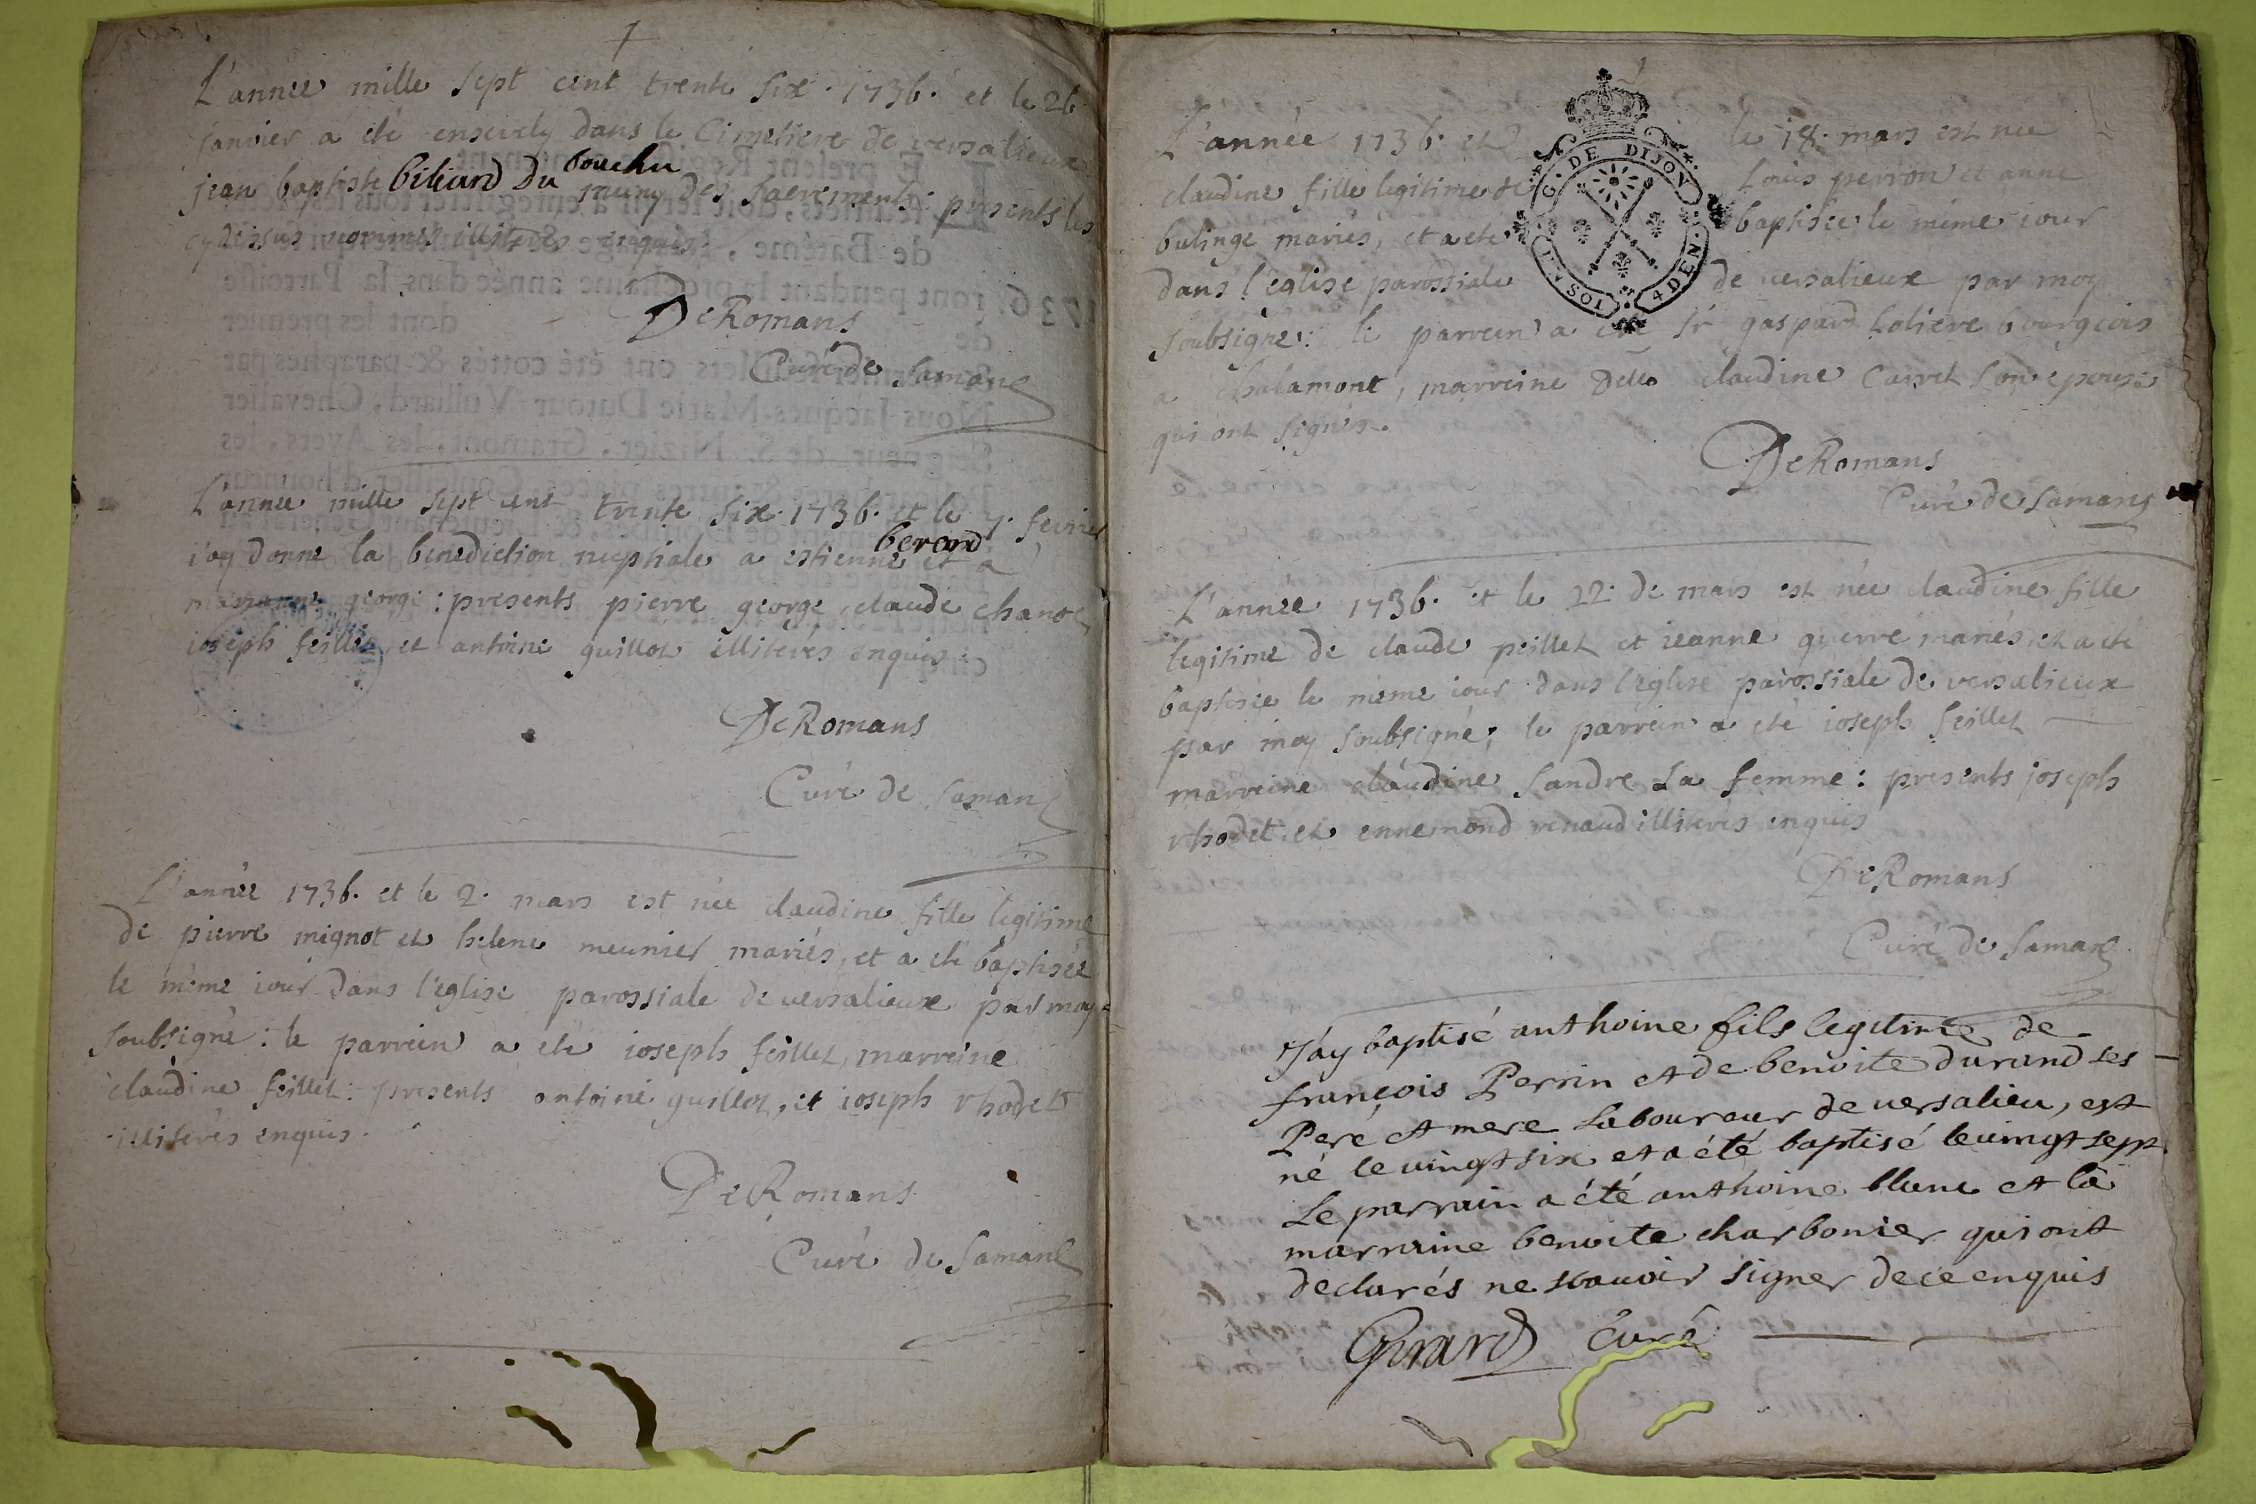 L'année mille sept cent trente six. 1736. et le 26
janvier a eté ensevely dans le Cimetiere de versalieux
jean baptiste biliard Du bouchu muny des sacrements: presents les
cydessus nommés illiterés enquis
DeRomans
Curé de Samans
L'année mille sept cent trente six. 1736. et le 7. fevrier
i'ay donné la benediction nuptiale a estienne berard et a
george: presents pierre george, claude chanel
ioseph feillet et antoine guillot illiterés enquis
DeRomans
Curé de Samans
L'année 1736. et le 2. mars est née claudine fille legitime
de pierre mignot et helene meunier mariés, et a eté baptisée
le même iour dans l'eglise parossiale de versalieux par moy
soubsigné: le parrein a eté ioseph feillet, marreine
claudine feillet: presents antoine guillot, et ioseph rhodet
illiterés enquis.
DeRomans
Curé de Samans
G. DE DIJON
4 DEN.
L'année 1736. et le 18. mars est née
claudine fille legitime de Louis perron et anne
bulinge mariés, et a eté baptisée le même iour
dans l'eglise parossiale de versalieux par moy
soubsigné: le parrein a eté sr gaspard Loliere bourgeois
a chalamont, marreine delle claudine Carret son epouse
qui ont signés.
DeRomans
Curé de Samans
L'année 1736. et le 22. de mars est née claudine fille
legitime de claude peillet et ieanne querre mariés, et a eté
baptisée le meme iour dans l'eglise parossiale de versalieux
par moy soubsigné; le parrein a eté ioseph feillet
marreine claudine sandre sa femme: presents joseph
rhodet et ennemond renaud illiterés enquis
DeRomans
Curé de Samans
J'ay baptisé anthoine fils legitime de
françois Perrin et de benoite durand ses
Peré et mere Laboureur de versalieu, est
né le vingt six et a été baptisé le vingt sept
Le parrain a été anthoine blanc et la
marraine benoite charbonier qui ont
declarés ne scavoir signer de ce enquis
Girard Curé